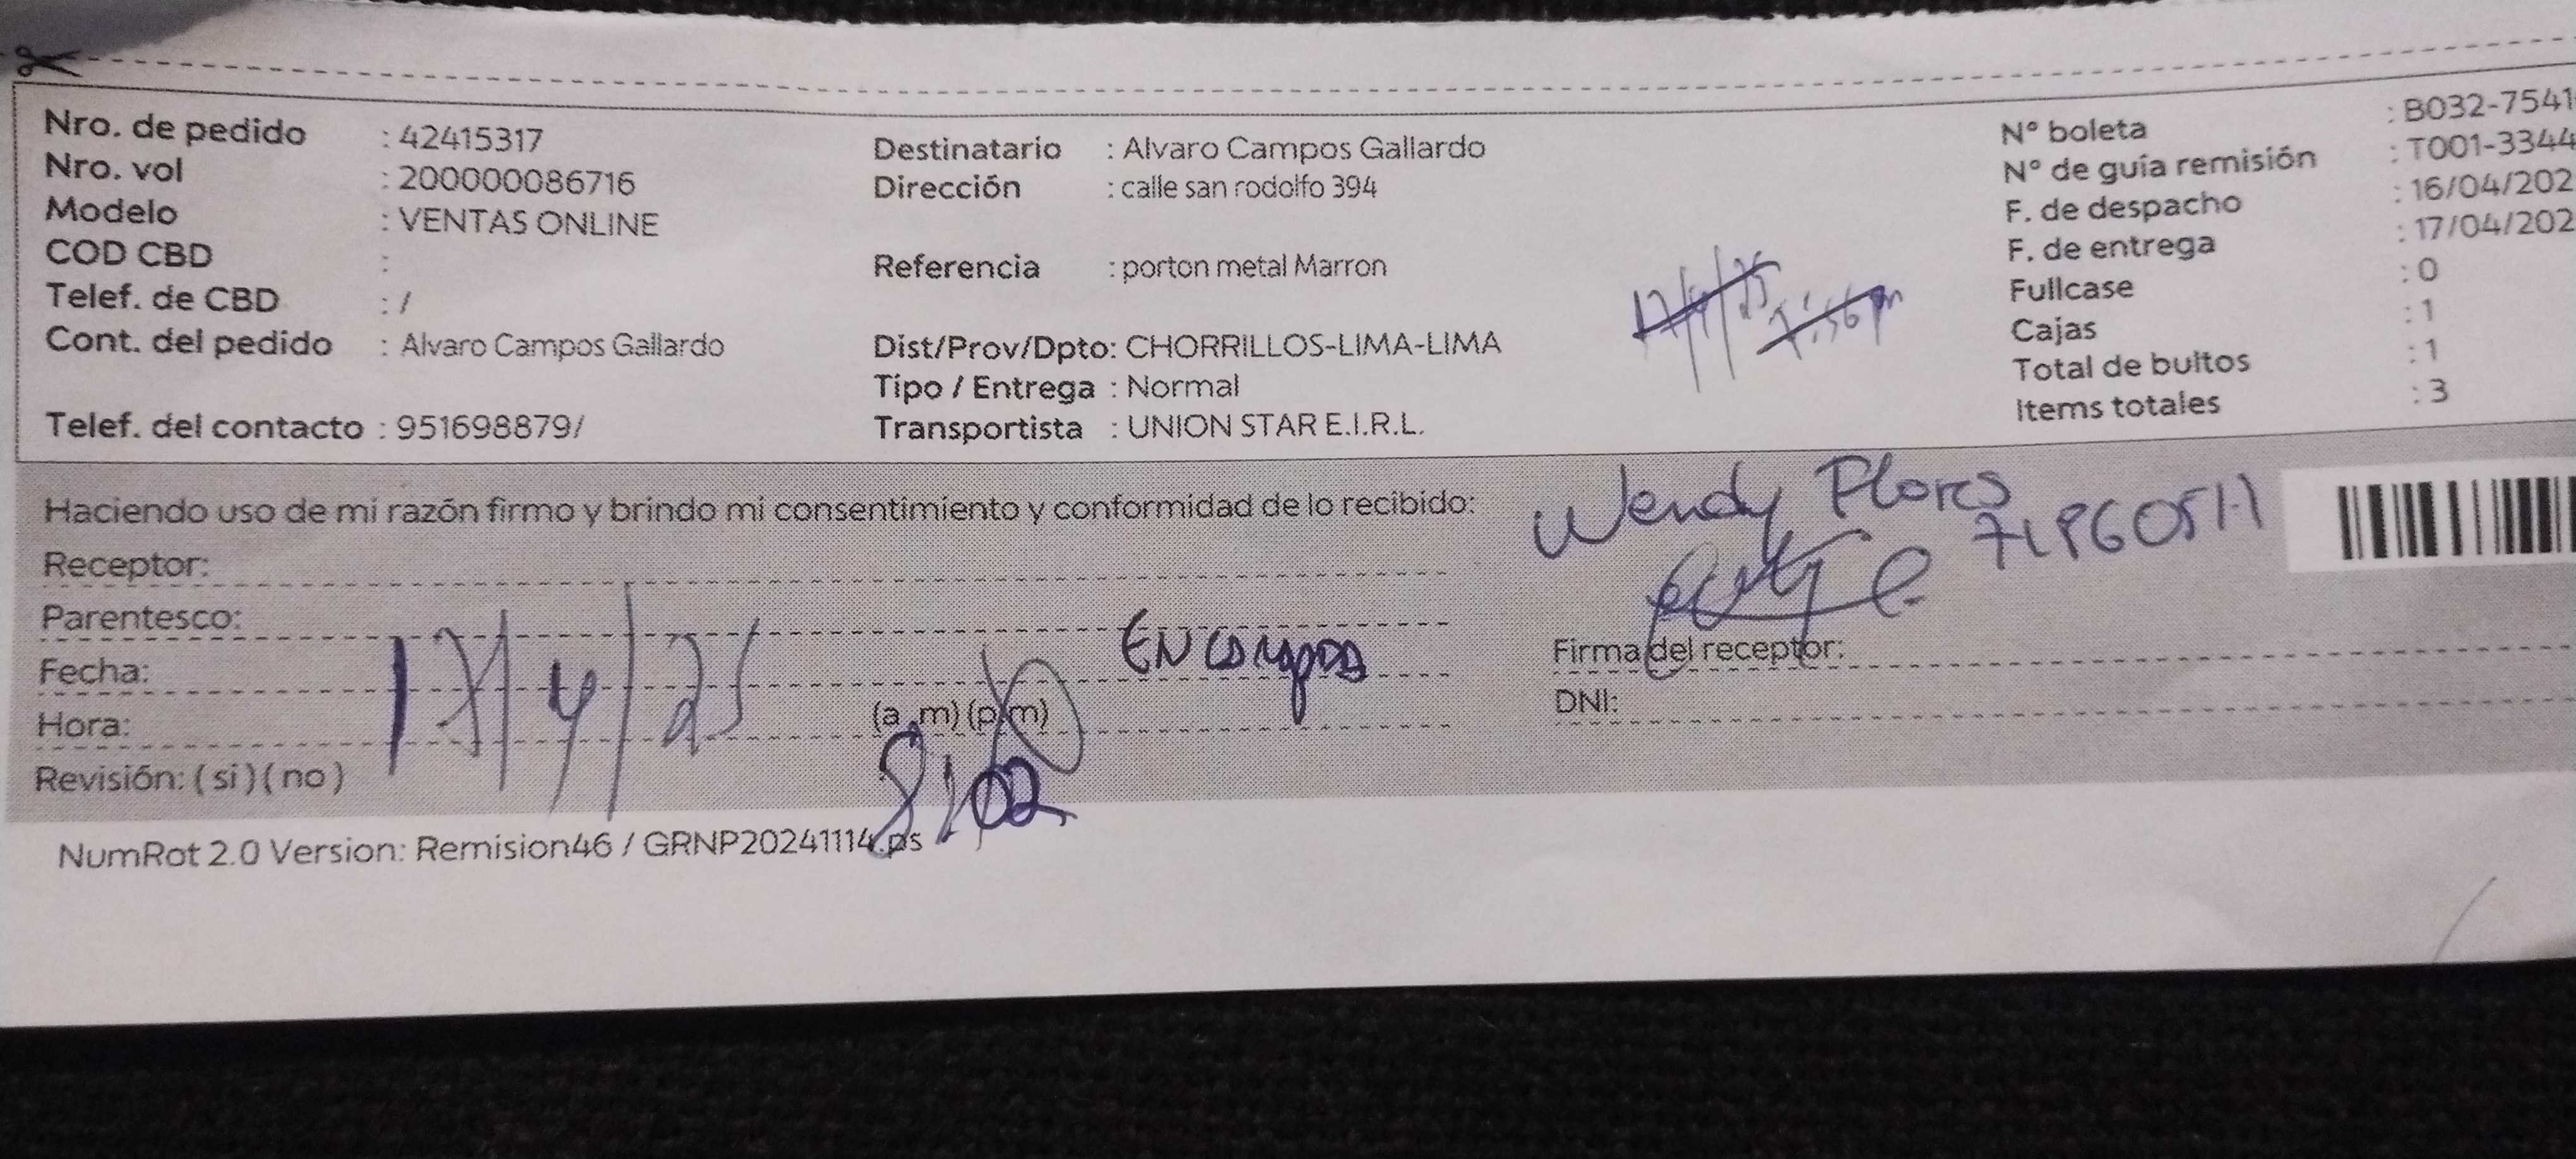 Nro. de pedido : 42415317
Nro. vol : 200000086716
Modelo : VENTAS ONLINE
COD CBD :
Telef. de CBD : /
Cont. del pedido : Alvaro Campos Gallardo
Telef. del contacto : 951698879/
Destinatario : Alvaro Campos Gallardo
Dirección : calle san rodolfo 394
Referencia : porton metal Marron
Dist/Prov/Dpto: CHORRILLOS-LIMA-LIMA
Tipo / Entrega : Normal
Transportista : UNION STAR E.I.R.L.
17/4/25
7:56 pm
N° boleta : B032-7541
N° de guía remisión : T001-3344
F. de despacho : 16/04/202
F. de entrega : 17/04/202
Fullcase : 0
Cajas : 1
Total de bultos : 1
Items totales : 3
Haciendo uso de mi razón firmo y brindo mi consentimiento y conformidad de lo recibido:
Wendy Flores
Receptor:
Parentesco:
Fecha: 17/4/25
Hora: (a.m) (p.m)
8:02
Revisión: ( si ) ( no )
Firma del receptor:
DNI:
NumRot 2.0 Version: Remision46 / GRNP20241114.ps